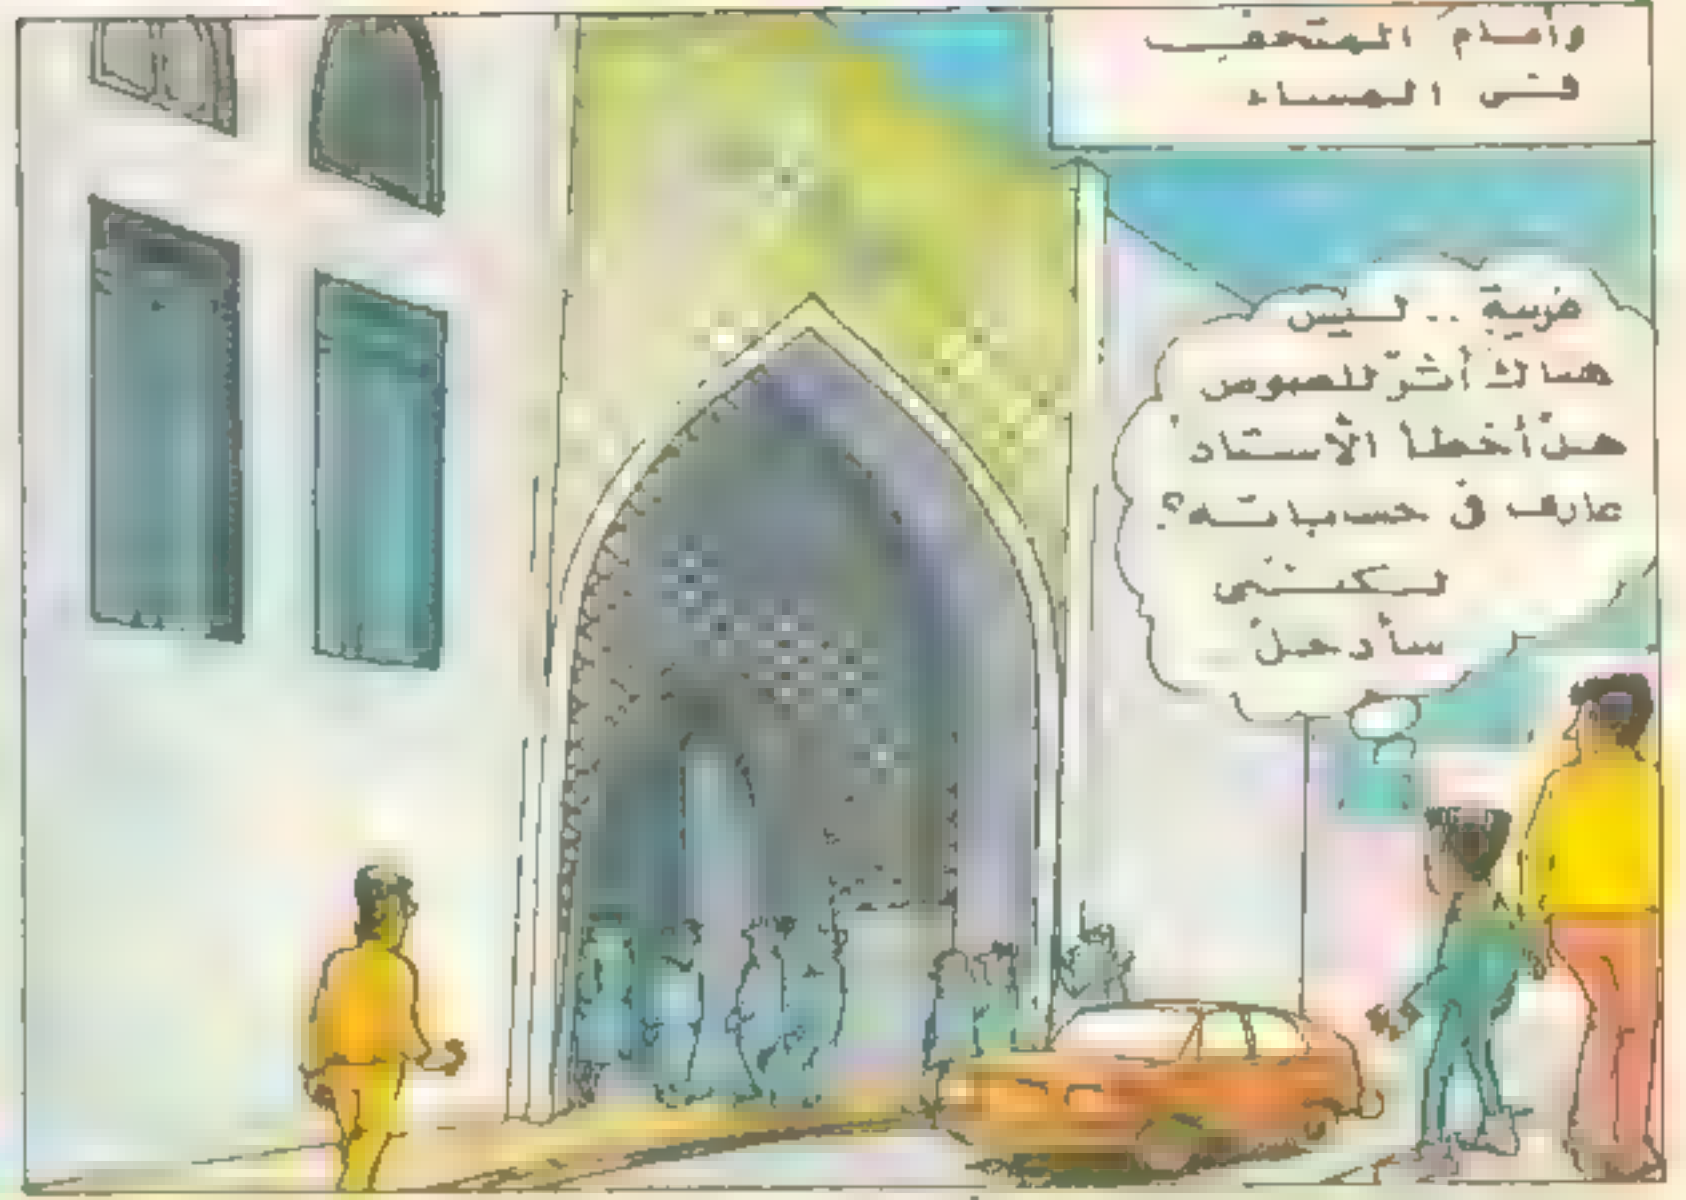 وأمام المتحف
في المساء
غريبة .. ليس
هناك أثر للصوص
هل أخطأ الأستاذ
عارف في حساباته؟
لكننى
سأدخل